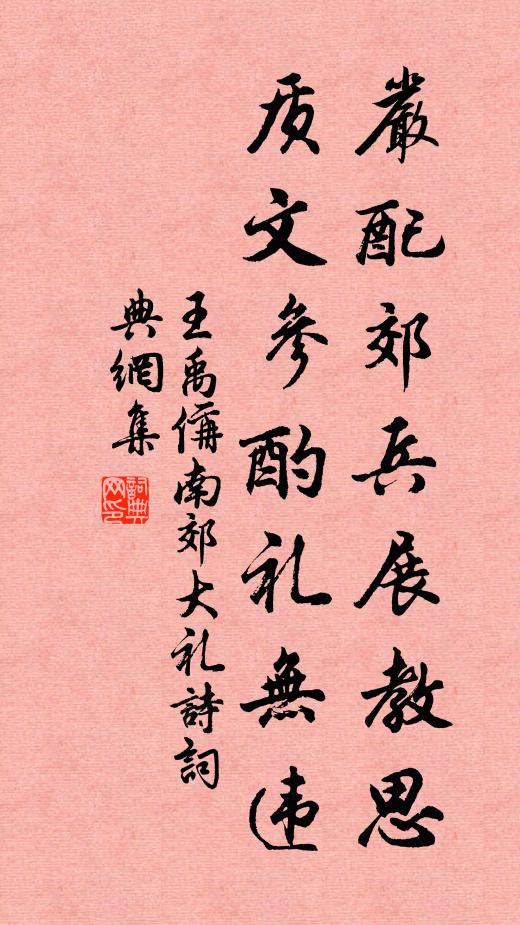 嚴配郊兵展教思
质文參酌礼無违
王禹偁南郊大礼詩詞
典網集
詞典网印